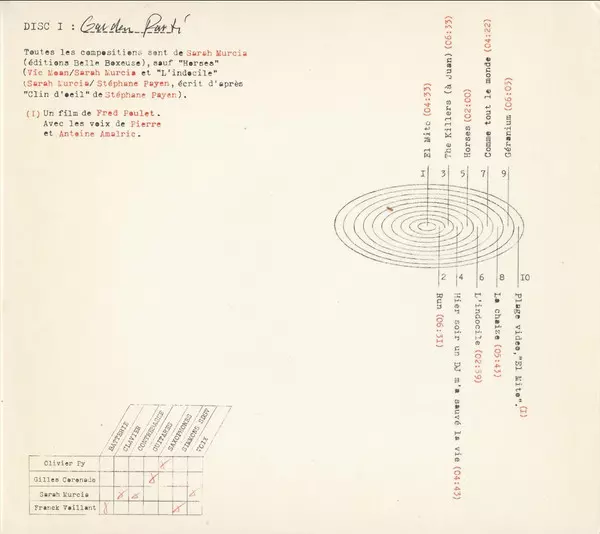 DISC I : Garden Parti
Toutes les compositions sont de Sarah Murcia
(éditions Belle Boxeuse), sauf "Horses"
(Vic Moan/Sarah Murcia et "L'indocile"
(Sarah Murcia/ Stéphane Payen, écrit d'après
"Clin d'oeil" de Stéphane Payen).
(I) Un film de Fred Poulet.
Avec les voix de Pierre
et Antoine Amalric.
El Mito (04:33)
The Killers (à Juan) (06:33)
Horses (02:00)
Comme tout le monde (04:22)
Géranium (06:03)
I 3 5 7 9
2 4 6 8 IO
Run (06:3I)
Hier soir un DJ m'a sauvé la vie (04:43)
L'indocile (02:59)
La chaise (05:43)
Plage video,"El Mito". (I)
BATTERIE
CLAVIER
CONTREBASSE
GUITARES
SAXOPHONES
VOIX
Olivier Py
Gilles Coronado
Sarah Murcia
Franck Vaillant